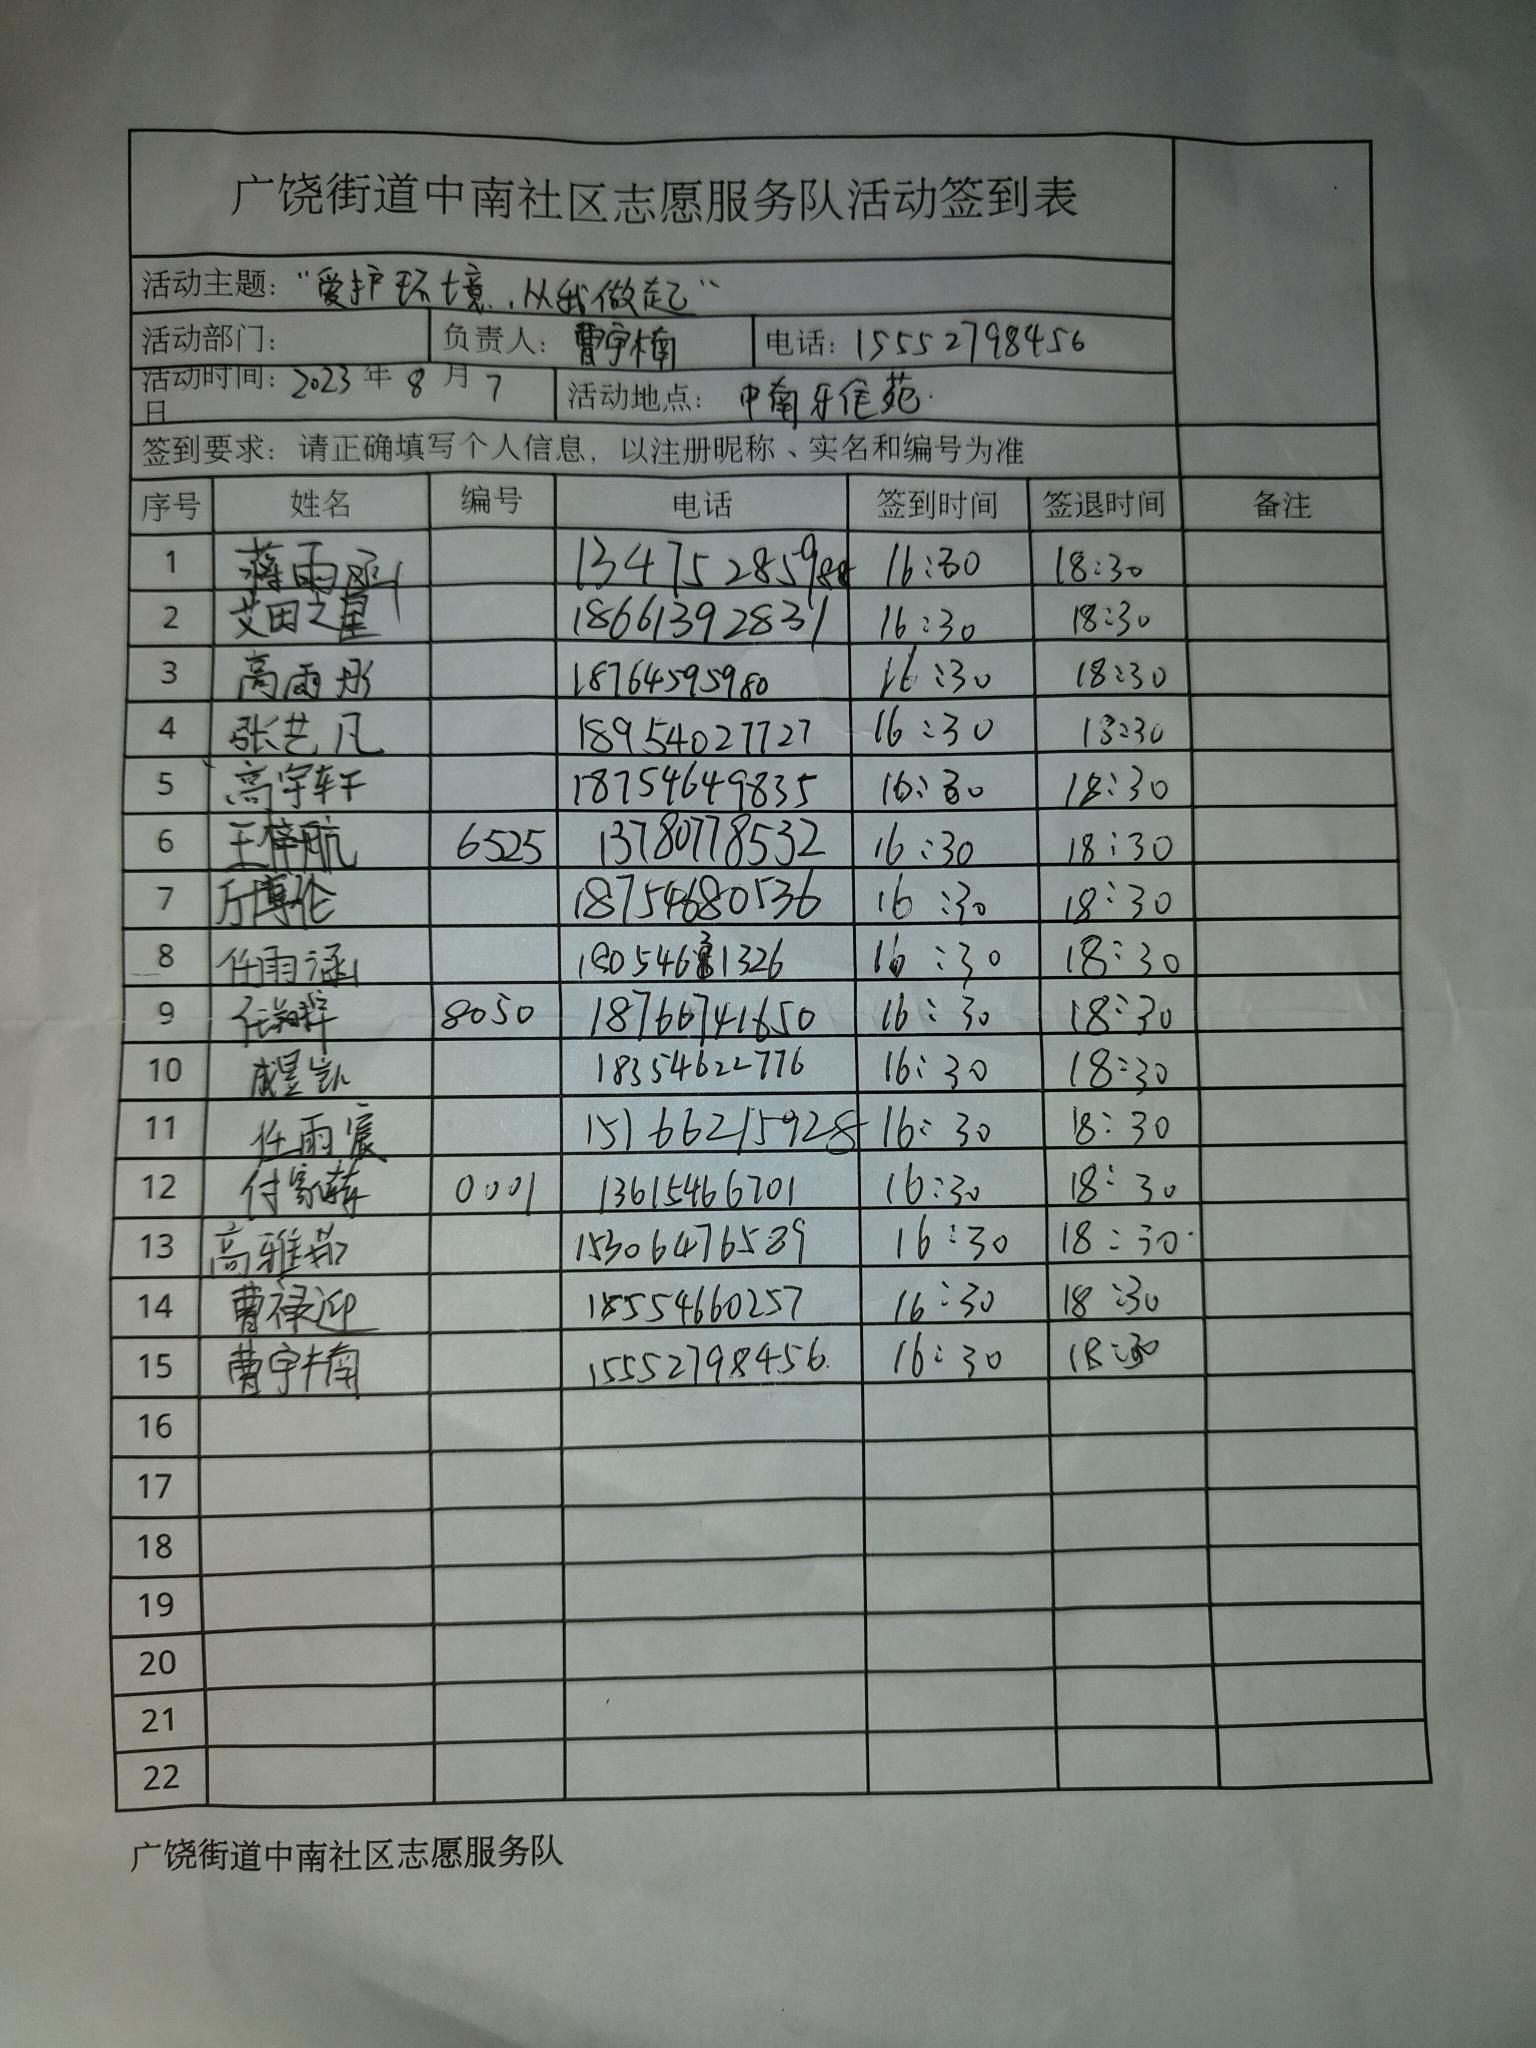 广饶街道中南社区志愿服务队活动签到表
活动主题："爱护环境，从我做起"
活动部门： 负责人：曹宇楠 电话：15552798456
活动时间：2023年8月7日 活动地点：中南牙佳苑
签到要求：请正确填写个人信息，以注册昵称、实名和编号为准
序号 姓名 编号 电话 签到时间 签退时间 备注
1 蒋雨涵 16:30 18:30
2 艾田之星 18661392831 16:30 18:30
3 高雨彤 18764595980 16:30 18:30
4 张艺凡 18954027727 16:30 18:30
5 高宇轩 18754649835 16:30 18:30
6 王梓航 6525 13780778532 16:30 18:30
7 博伦 18754680536 16:30 18:30
8 任雨涵 16:30 18:30
9 任 8050 18766741650 16:30 18:30
10 成昱凯 18354622776 16:30 18:30
11 任雨宸 15166215928 16:30 18:30
12 付家 0001 13615466701 16:30 18:30
13 高雅茹 15306476589 16:30 18:30
14 曹禄迎 18554660257 16:30 18:30
15 曹宇楠 15552798456 16:30 18:30
16
17
18
19
20
21
22
广饶街道中南社区志愿服务队